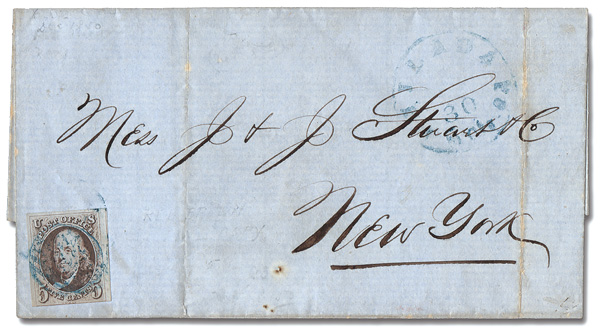 30
Mess J & J Stuart & Co
New York
U S
POST OFFICE
5 FIVE CENTS 5